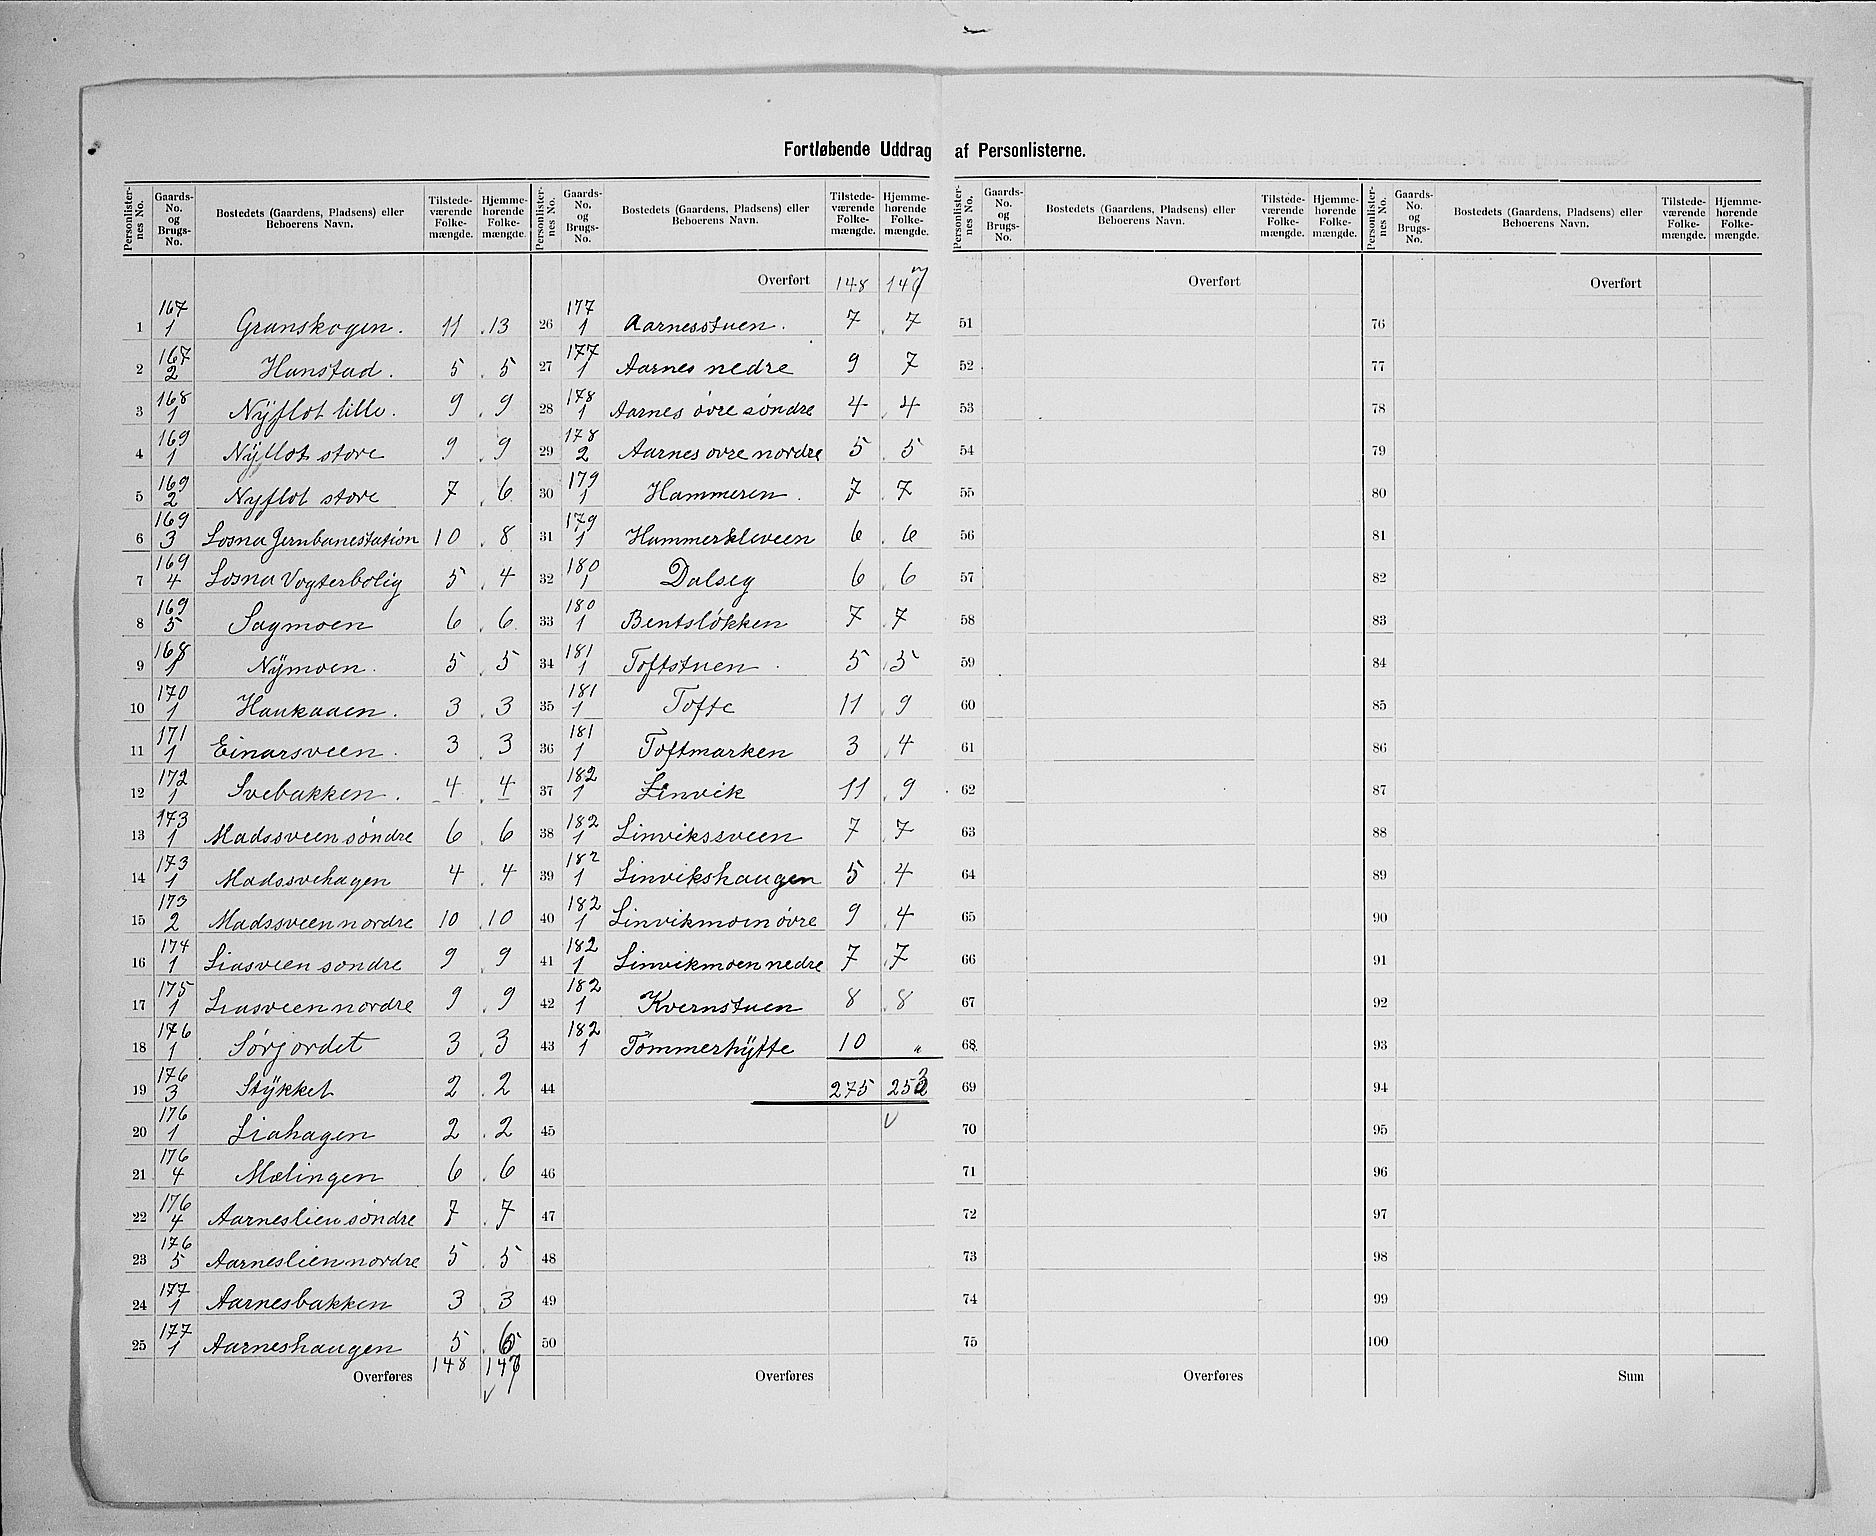 Fortløbende Uddrag af Personlisterne.
Personlisternes No. | Gaards-No. og Brugs-No. | Bostedets (Gaardens, Pladsens) eller Beboerens Navn. | Tilstedeværende Folkemængde. | Hjemmehørende Folkemængde.
1 | 167/1 | Granskogen. | 11 | 13
2 | 167/2 | Hanstad. | 5 | 5
3 | 168/1 | Nÿflot lille. | 9 | 9
4 | 169/1 | Nÿflot store | 9 | 9
5 | 169/2 | Nyflot store | 7 | 6
6 | 169/3 | Losna Jernbanestation | 10 | 8
7 | 169/4 | Losna Vogterbolig | 5 | 4
8 | 169/5 | Sagmoen | 6 | 6
9 | 168/1 | Nÿmoen. | 5 | 5
10 | 170/1 | Haukaaen. | 3 | 3
11 | 171/1 | Einarsveen. | 3 | 3
12 | 172/1 | Svebakken. | 4 | 4
13 | 173/1 | Madssveen søndre | 6 | 6
14 | 173/1 | Madssvehagen | 4 | 4
15 | 173/2 | Madssveen nordre | 10 | 10
16 | 174/1 | Liasveen sondre | 9 | 9
17 | 175/1 | Liasveen nordre | 9 | 9
18 | 176/1 | Sørjordet | 3 | 3
19 | 176/3 | Stÿkket | 2 | 2
20 | 176/1 | Liahagen | 2 | 2
21 | 176/4 | Mælingen | 6 | 6
22 | 176/4 | Aarneslien søndre | 7 | 7
23 | 176/5 | Aarneslien nordre | 5 | 5
24 | 177/1 | Aarnesbakken | 3 | 3
25 | 177/1 | Aarneshaugen | 5 | 6
Overføres | 148 | 147
Personlisternes No. | Gaards-No. og Brugs-No. | Bostedets (Gaardens, Pladsens) eller Beboerens Navn. | Tilstedeværende Folkemængde. | Hjemmehørende Folkemængde.
Overført | 148 | 147
26 | 177/1 | Aarnesstuen. | 7 | 7
27 | 177/1 | Aarnes nedre | 9 | 7
28 | 178/1 | Aarnes øvre søndre | 4 | 4
29 | 178/2 | Aarnes ovre nordre | 5 | 5
30 | 179/1 | Hammeren. | 7 | 7
31 | 179/1 | Hammerkleveen | 6 | 6
32 | 180/1 | Dalseg | 6 | 6
33 | 180/1 | Bentsløkken | 7 | 7
34 | 181/1 | Toftstuen. | 5 | 5
35 | 181/1 | Tofte | 11 | 9
36 | 181/1 | Toftmarken | 3 | 4
37 | 182/1 | Linvik | 11 | 9
38 | 182/1 | Linvikssveen | 7 | 7
39 | 182/1 | Linvikshaugen | 5 | 4
40 | 182/1 | Linvikmoen øvre | 9 | 4
41 | 182/1 | Linvikmoen nedre | 7 | 7
42 | 182/1 | Kvernstuen | 8 | 8
43 | 182/1 | Tømmerhÿtte | 10 | "
44 | 275 | 253
45
46
47
48
49
50
Overføres
Personlisternes No. | Gaards-No. og Brugs-No. | Bostedets (Gaardens, Pladsens) eller Beboerens Navn. | Tilstedeværende Folkemængde. | Hjemmehørende Folkemængde.
Overført
51
52
53
54
55
56
57
58
59
60
61
62
63
64
65
66
67
68
69
70
71
72
73
74
75
Overføres
Personlisternes No. | Gaards-No. og Brugs-No. | Bostedets (Gaardens, Pladsens) eller Beboerens Navn. | Tilstedeværende Folkemængde. | Hjemmehørende Folkemængde.
Overført
76
77
78
79
80
81
82
83
84
85
86
87
88
89
90
91
92
93
94
95
96
97
98
99
100
Sum